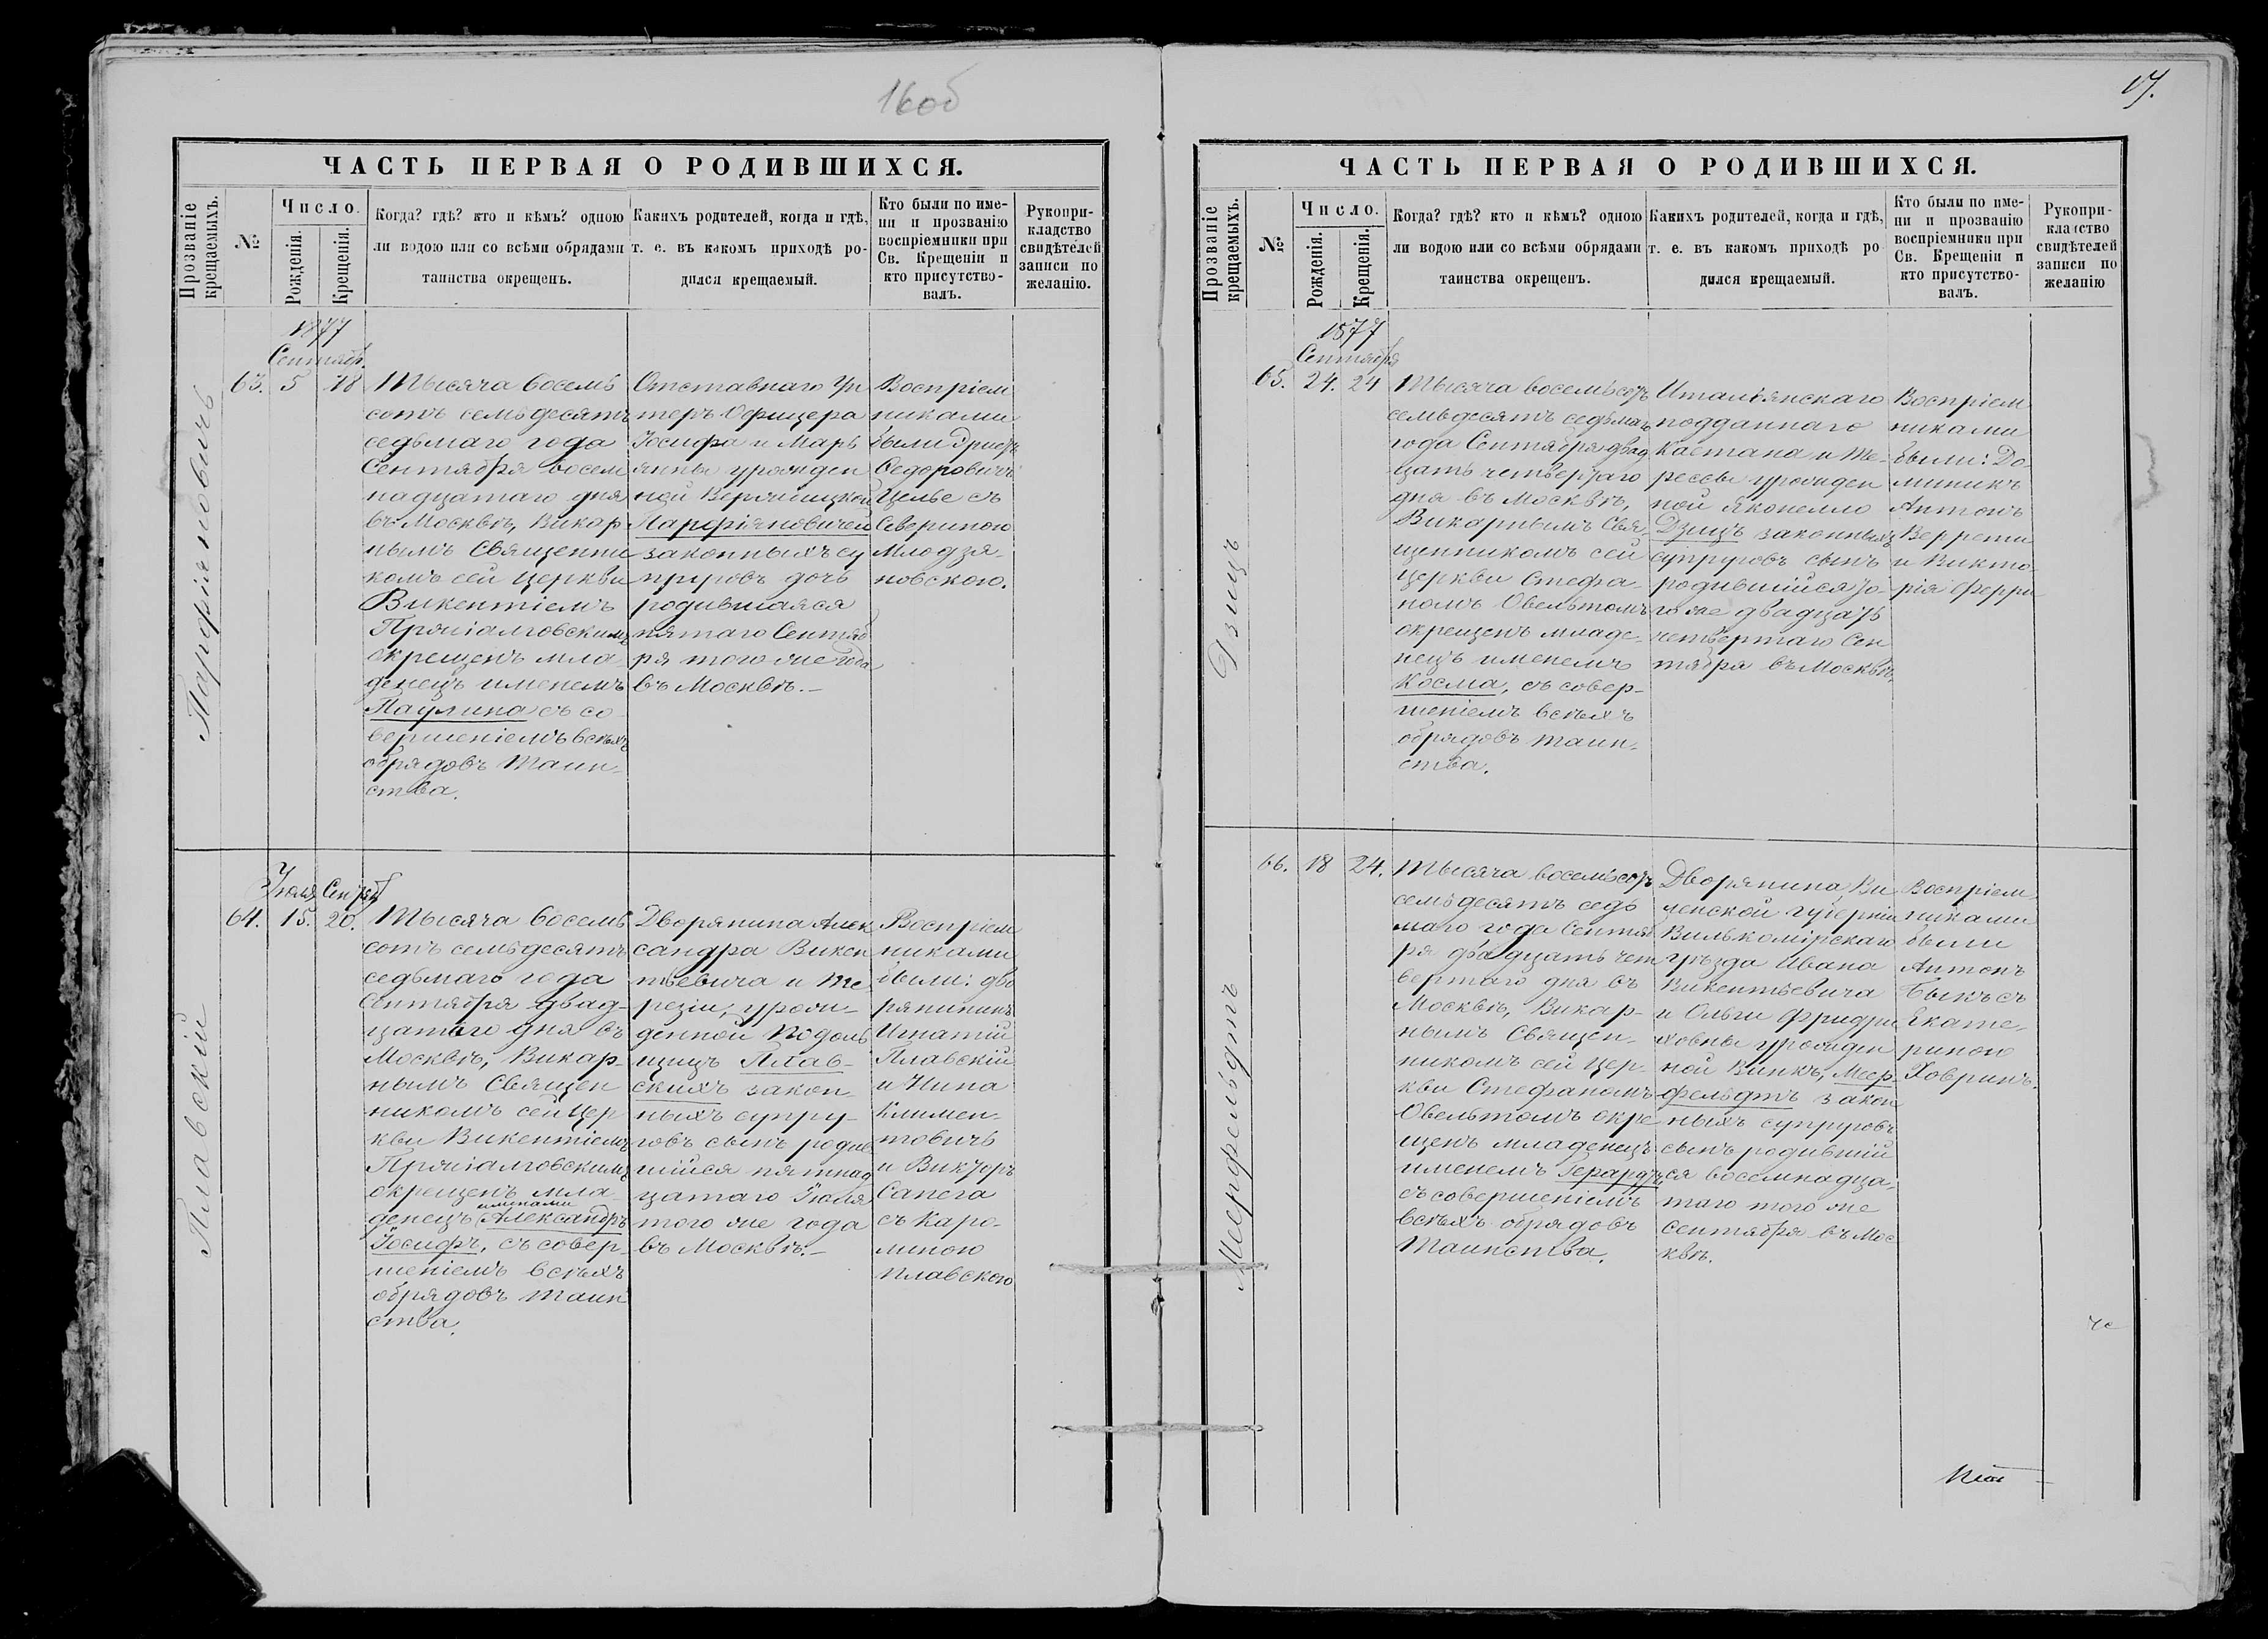 16об
ЧАСТЬ ПЕРВАЯ О РОДИВШИХСЯ.
Прозваніе крещаемыхъ.
№
Число.
Рожденія.
Крещенія.
Когда? гдѣ? кто и кѣмъ? одною
ли водою или со всѣми обрядами
таинства окрещенъ.
Какихъ родителей, когда и гдѣ,
т. е. въ какомъ приходѣ ро-
дился крещаемый.
Кто были по име-
ни и прозванію
воспріемники при
Св. Крещеніи и
кто присутство-
валъ.
Рукопри-
кладство
свидѣтелей
записи по
желанію.
Парфіяновичъ
1877
Сентябр.
63. 5 18
Тысяча восемь
сотъ семьдесятъ
седьмаго года
Сентября восем
надцатаго дня
въ Москвѣ, Викар
нымъ Священни
комъ сей церкви
Викентіемъ
Пряціалговскимъ
окрещенъ мла
денецъ именемъ
Паулина съ со
вершеніемъ всѣхъ
обрядовъ Таин-
ства.
Отставнаго Ун
теръ Офицера
Іосифа и Марь
янны урожден
ной
Парфіяновичей
законныхъ су
пруговъ дочь
родившаяся
пятаго Сентяб
ря того же года
въ Москвѣ.-
Воспріем
никами
были
Федоровичъ
Целье съ
Севериною
Млодзя-
новскою.
Плавскій
Іюля Сентяб
64. 15. 20.
Тысяча восемь
сотъ семьдесятъ
седьмаго года
Сентября двад-
цатаго дня въ
Москвѣ, Викар-
нымъ Священ
никомъ сей Цер
кви Викентіемъ
Пряціалговскимъ
окрещенъ мла-
именами
денецъ Александръ
Іосифъ, съ совер-
шеніемъ всѣхъ
обрядовъ таин
ства.
Дворянина Алек
сандра Викен
тьевича и Те
резіи, урож-
денной Подоль
щицъ Плав-
скихъ закон
ныхъ супру-
говъ сынъ родив
шійся пятнад
цатаго Іюля
того же года
въ Москвѣ.-
Воспріем
никами
были: дво
рянинъ
Игнатій
Плавскій
и Нина
Климен-
товичъ
и Викторъ
Сапега
съ Каро-
линою
Плавского
17.
ЧАСТЬ ПЕРВАЯ О РОДИВШИХСЯ.
Прозваніе крещаемыхъ.
№
Число.
Рожденія.
Крещенія.
Когда? гдѣ? кто и кѣмъ? одною
ли водою или со всѣми обрядами
таинства окрещенъ.
Какихъ родителей, когда и гдѣ,
т. е. въ какомъ приходѣ ро
дился крещаемый.
Кто были по име-
ни и прозванію
воспріемники при
Св. Крещеніи и
кто присутство-
валъ.
Рукопри-
кладство
свидѣтелей
записи по
желанію
Дзицъ
1877
Сентября
65. 24. 24
Тысяча восемьсотъ
семьдесятъ седьмаго
года Сентября двад
цать четвертаго
дня въ Москвѣ,
Викарнымъ Свя-
щенникомъ сей
церкви Стефа-
номъ Овельтомъ
окрещенъ младе-
нецъ именемъ
Косма, съ совер-
шеніемъ всѣхъ
обрядовъ таин-
ства.
Итальянскаго
подданнаго
Каетана и Те-
рессы урожден
ной Яконелло
Дзицъ законныхъ
супруговъ сынъ
родившійся то-
го же двадцать
четвертаго Сен
тября въ Москвѣ
Воспріем
никами
были: До-
миникъ
Антонъ
Веррети
и Викто
рія Ферри
Меерфельдтъ
66. 18 24.
Тысяча восемьсотъ
семьдесятъ седь
маго года Сентяб
ря двадцать чет
вертаго дня въ
Москвѣ, Викар-
нымъ Священ-
никомъ сей Цер-
кви Стефаномъ
Овельтомъ окре
щенъ младенецъ
именемъ Герардъ,
съ совершеніемъ
всѣхъ обрядовъ
Таинства.
Дворянина Ви
ленской губерніи
Вилькомірскаго
уѣзда Ивана
Викентьевича
и Ольги Фридри
ховны урожден
ной Винкъ, Меер-
фельдтъ закон
ныхъ супруговъ
сынъ родившій
ся восемнадца-
таго того же
Сентября въ Мос
квѣ.
Воспріем
никами
были
Антонъ
Быкъ съ
Екате-
риною
Ховринъ.